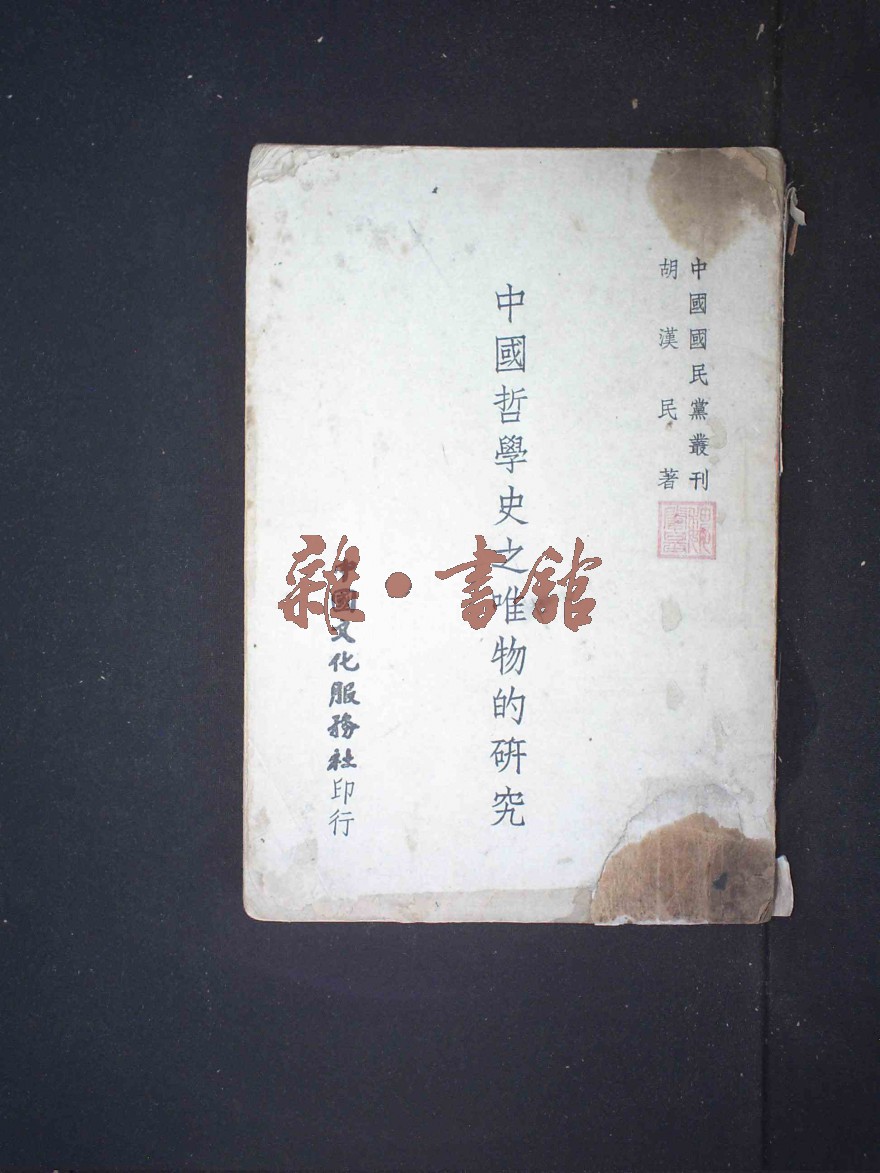 中國國民黨叢刊
胡漢民著
中國哲學史之唯物的研究
中國文化服務社印行
雜·書舘